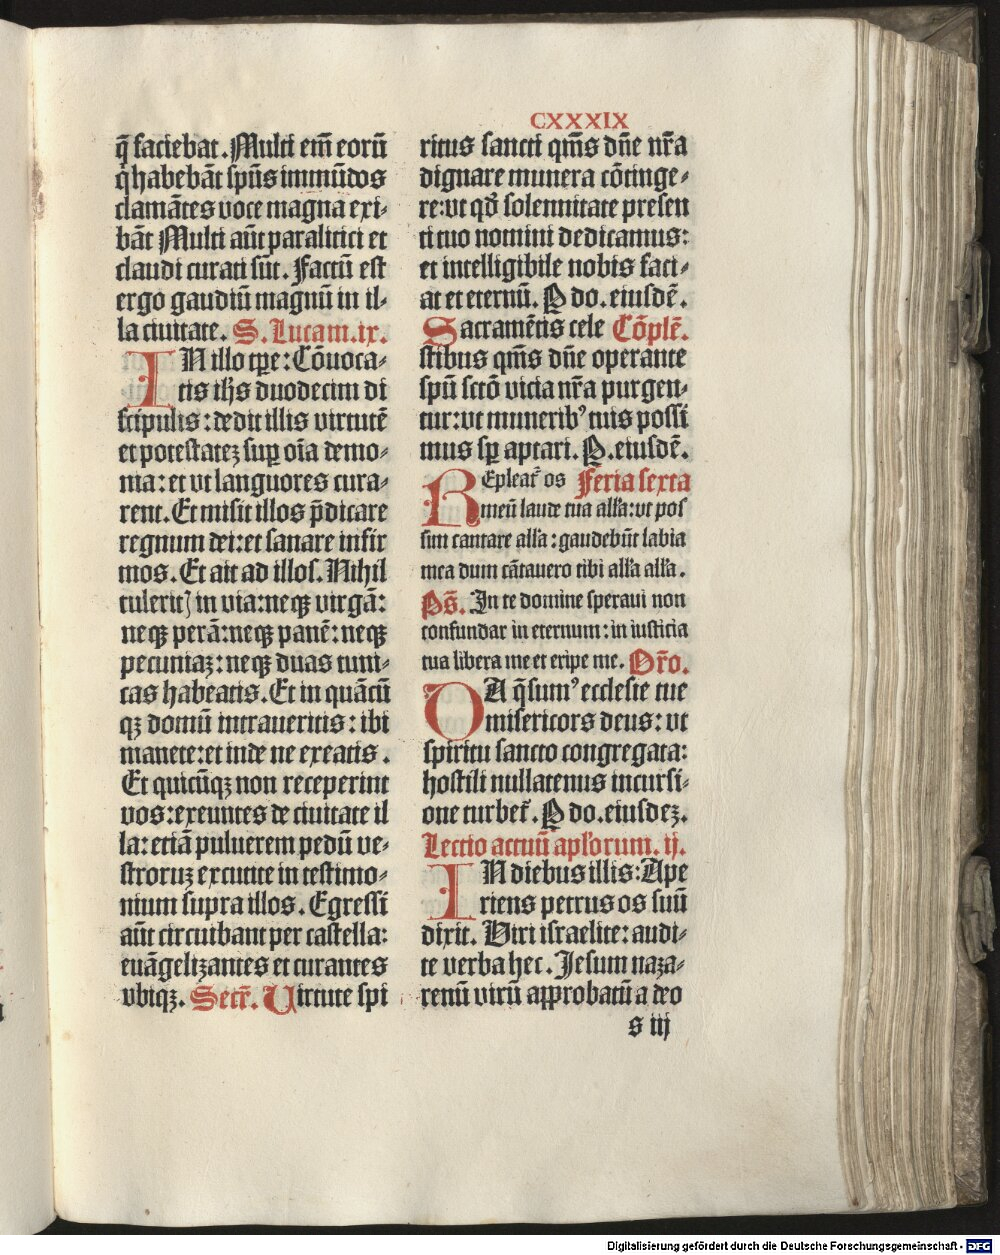 CXXXIX
q̄ faciebat. Multi em̄ eorū
q̇ habebāt spūs immūdos
clamātes voce magna exi-
bāt Multi aūt paralitici et
claudi curati sūt. Factū est
ergo gaudiū magnū in il-
la ciuitate. S. Lucam. ix.
IN illo tp̄e: Cōuoca-
tis ih̄s duodecim di
scipulis: dedit illis virtutē
et potestateꝫ suꝑ oīa demo-
nia: et vt languores cura-
rent. Et misit illos p̄dicare
regnum dei: et sanare infir
mos. Et ait ad illos. Nihil
tuleritꝭ in via: neqꝫ virgā:
neqꝫ perā: neqꝫ panē: neqꝫ
pecuniaꝫ: neqꝫ duas tuni-
cas habeatis. Et in quācū
qꝫ domū intraueritis: ibi
manete: et inde ne exeatis.
Et quicūqꝫ non receperint
vos: exeuntes de ciuitate il
la: etiā puluerem pedū ve-
stroruꝫ excutite in testimo-
nium supra illos. Egressi
aūt circuibant per castella:
euāgelizantes et curantes
vbiqꝫ. Secr̄. Uirtute spi
ritus sancti qm̄s dn̄e nr̄a
dignare munera cōtinge-
re: vt qd̄ solennitate presen
ti tuo nomini dedicamus:
et intelligibile nobis faci-
at et eternū. P do. eiusdē.
Sacramētis cele Cōplē.
stibus qm̄s dn̄e operante
spū sctō vicia nr̄a purgen-
tur: vt munerib⁹ tuis possi
mus sꝑ aptari. P. eiusdē.
REpleat̄ os Feria sexta
meū laude tua all'a: vt pos
sim cantare all'a: gaudebūt labia
mea dum cātauero tibi all'a all'a.
Ps̄. In te domine speraui non
confundar in eternum: in iusticia
tua libera me et eripe me. Or̄o.
DA q̄sum⁹ ecclesie tue
misericors deus: vt
spiritu sancto congregata:
hostili nullatenus incursi-
one turbet̄. P do. eiusdeꝫ.
Lectio actuū apl'orum. ij.
IN diebus illis: Ape
riens petrus os suū
dixit. Uiri israelite: audi-
te verba hec. Jesum naza-
renū virū approbatū a deo
s iij
Digitalisierung gefördert durch die Deutsche Forschungsgemeinschaft - DFG